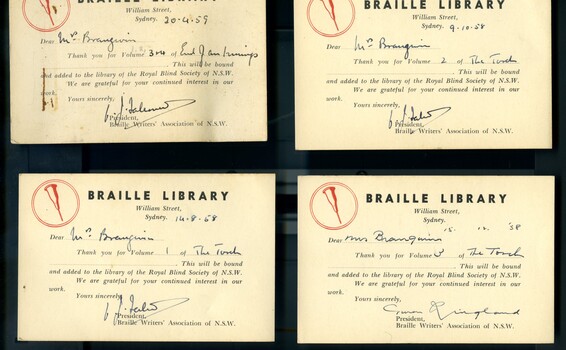 BRAILLE LIBRARY
William Street,
Sydney. 20-4-59
Dear Mrs Brangwin
Thank you for Volume 1, 2, 3 & 4 of End of an Innings
This will be bound
and added to the library of the Royal Blind Society of N.S.W.
We are grateful for your continued interest in our
work.
Yours sincerely,
President,
Braille Writers' Association of N.S.W.
BRAILLE LIBRARY
William Street,
Sydney. 9-10-58
Dear Mrs Brangwin
Thank you for Volume 2 of The Torch
This will be bound
and added to the library of the Royal Blind Society of N.S.W.
We are grateful for your continued interest in our
work.
Yours sincerely,
President,
Braille Writers' Association of N.S.W.
BRAILLE LIBRARY
William Street,
Sydney. 14-8-58
Dear Mrs Brangwin
Thank you for Volume 1 of The Torch
This will be bound
and added to the library of the Royal Blind Society of N.S.W.
We are grateful for your continued interest in our
work.
Yours sincerely,
President,
Braille Writers' Association of N.S.W.
BRAILLE LIBRARY
William Street,
Sydney.
Dear Mrs Brangwin 12. 58
Thank you for Volume 3 of The Torch
This will be bound
and added to the library of the Royal Blind Society of N.S.W.
We are grateful for your continued interest in our
work.
Yours sincerely,
President,
Braille Writers' Association of N.S.W.